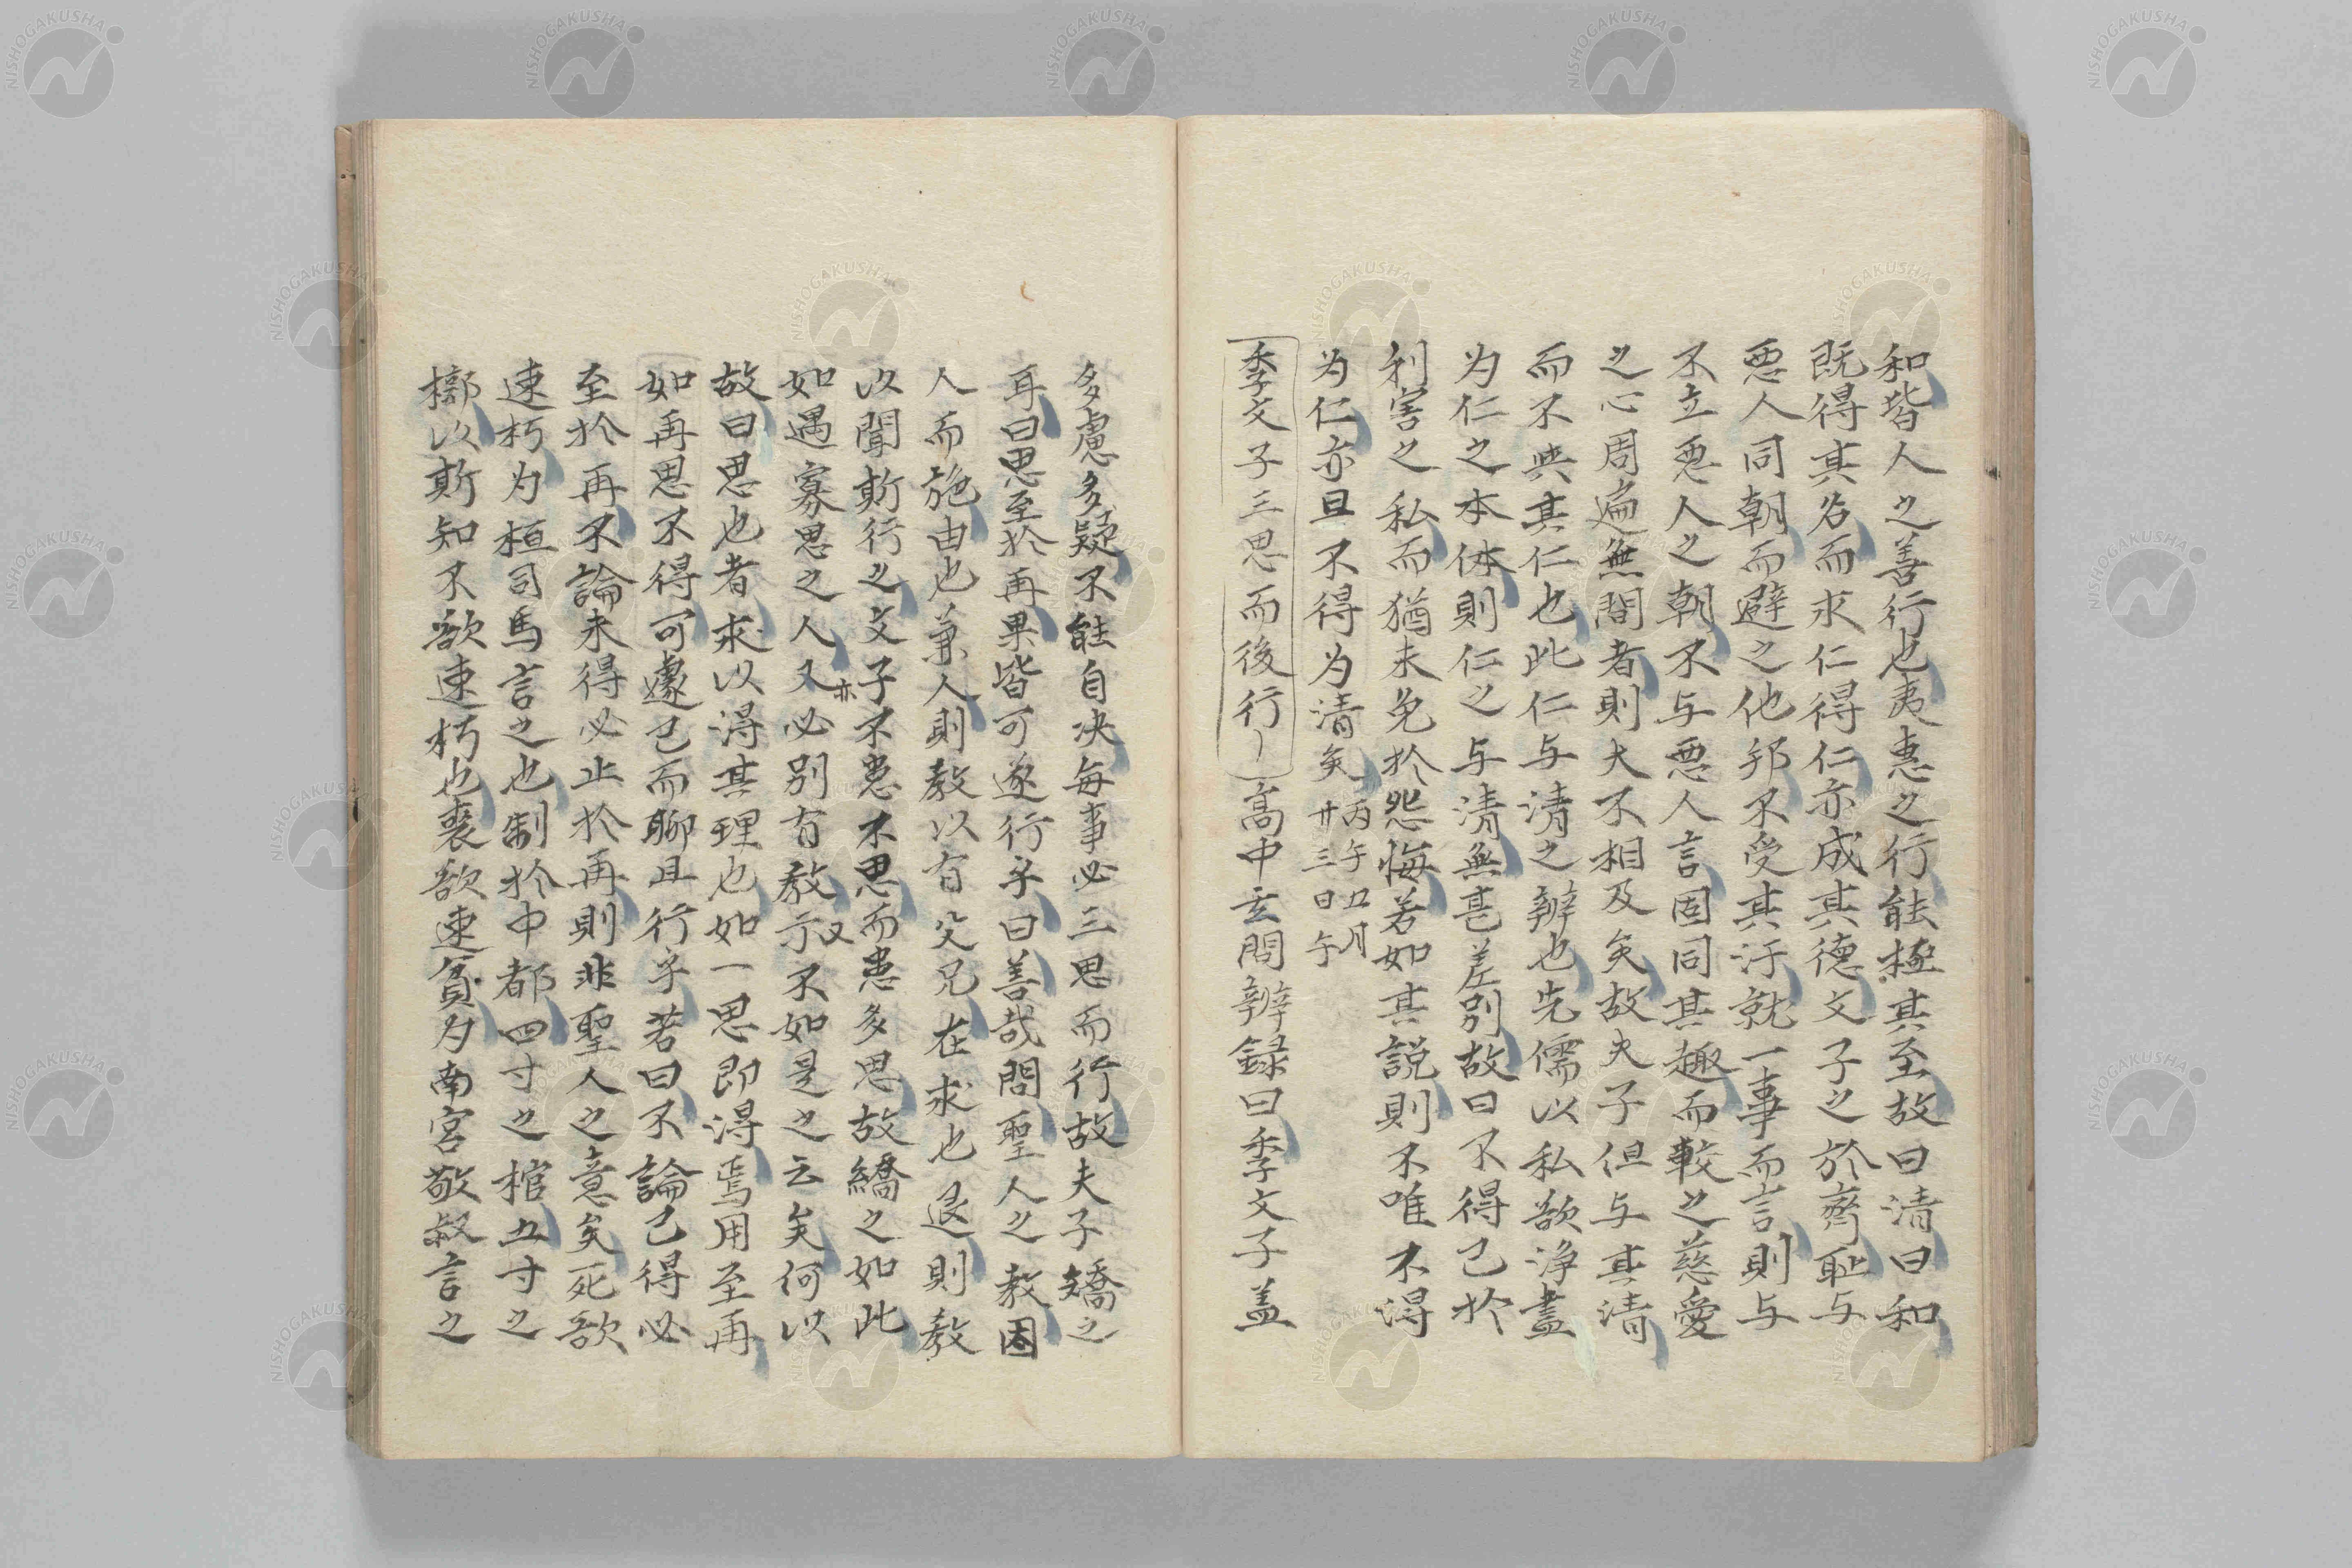 和皆人之善行也夷惠之行能極其至故曰清曰和
既得其名而求仁得仁亦成其德文子之於齊恥与
悪人同朝而避之他邦不受其汙就一事而言則与
不立悪人之朝不与悪人言固同其趣而較之慈愛
之心周遍無間者則大不相及矣故夫子但与其清
而不與其仁也此仁与清之辨也先儒以私欲浄盡
为仁之本体則仁之与清無甚差別故曰不得已於
利害之私而猶未免於怨悔若如其説則不唯不得
为仁亦且不得为清矣丙午五月廿三日午
季文子三思而後行〻高中玄問辨録曰季文子盖
多慮多疑不能自决毎事必三思而行故夫子矯之
耳曰思至於再果皆可遂行乎曰善哉問聖人之教因
人而施由也兼人則教以有父兄在求也退則教
以聞斯行之文子不患不思而患多思故繑之如此
如遇寡思之人又亦必別有教示又不如是之云矣何以
故曰思也者求以得其理也如一思即得焉用至再
如再思不得可遽已而聊且行乎若曰不論已得必
至於再不論未得必止於再則非聖人之意矣死欲
速朽为桓司馬言之也制於中都四寸之棺五寸之
槨以斯知不欲速朽也喪欲速貧为南宮敬叔言之
NISHOGAKUSHA